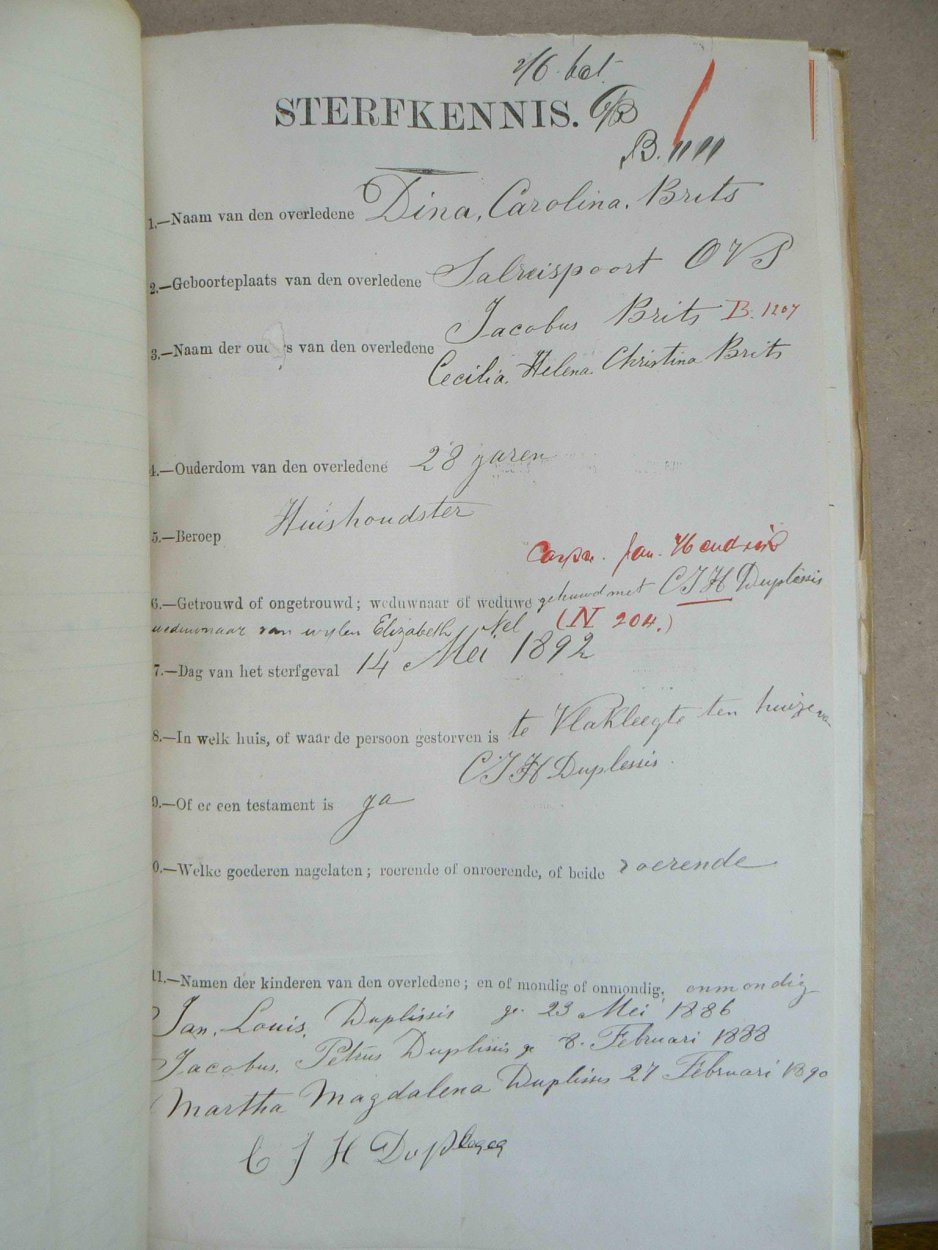 2/6. bet.
STERFKENNIS.
B. 1111
1.—Naam van den overledene Dina, Carolina, Brits
2.—Geboorteplaats van den overledene Salreispoort OVS
Jacobus Brits B. 1207
3.—Naam der ouders van den overledene
Cecilia, Helena Christina Brits
4.—Ouderdom van den overledene 28 jaren
5.—Beroep Huishoudster
Jan Hendrik
6.—Getrouwd of ongetrouwd; weduwnaar of weduwe gehuwd met C J H Duplessis
weduwnaar van wylen Elizabeth Nel (N 204.)
7.—Dag van het sterfgeval 14 Mei 1892
8.—In welk huis, of waar de persoon gestorven is te Vlakleegte ten huize van
C J H Duplessis.
9.—Of er een testament is ja
0.—Welke goederen nagelaten; roerende of onroerende, of beide roerende
11.—Namen der kinderen van den overledene; en of mondig of onmondig, onmondig
Jan, Louis, Duplissis ge. 23 Mei 1886
Jacobus, Petrus Duplissis ge 8. Februari 1888
Martha Magdalena Duplissis 27 Februari 1890
C J H Duplesys